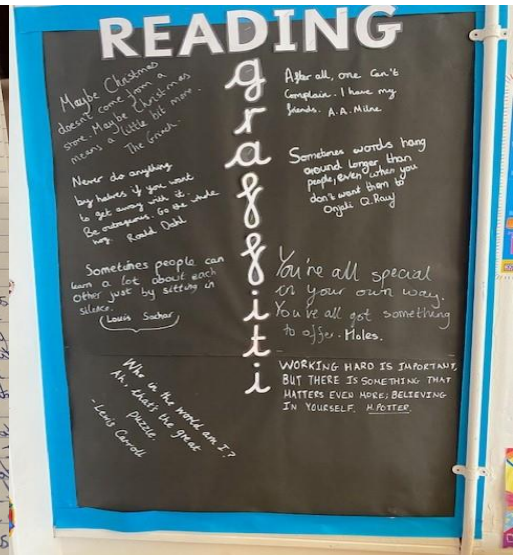 READING
graffiti
Maybe Christmas
doesn't come from a
store. Maybe Christmas
means a little bit more.
The Grinch.
Never do anything
by halves if you want
to get away with it.
Be outrageous. Go the whole
hog. Roald Dahl
Sometimes people can
learn a lot about each
other just by sitting in
silence.
(Louis Sachar)
Who in the world am I?
Ah, that's the great
puzzle.
- Lewis Carroll
After all, one can't
complain. I have my
friends. A.A. Milne
Sometimes words hang
around longer than
people, even when you
don't want them to
Onjali Q. Rauf
You're all special
in your own way.
You've all got something
to offer. Holes.
WORKING HARD IS IMPORTANT,
BUT THERE IS SOMETHING THAT
MATTERS EVEN MORE; BELIEVING
IN YOURSELF. H.POTTER.